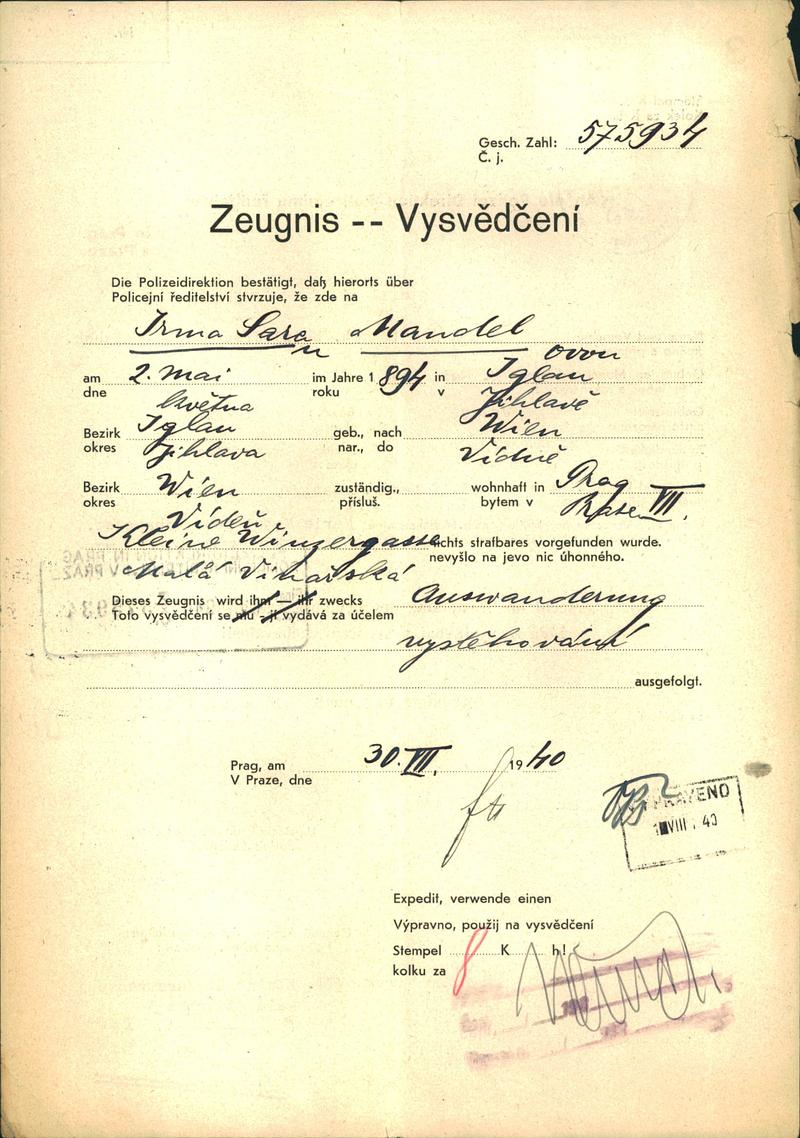 Gesch. Zahl: 575934
Č. j.
Zeugnis -- Vysvědčení
Die Polizeidirektion bestätigt, daß hierorts über
Policejní ředitelství stvrzuje, že zde na
Irma Sara Mandel
ovou
am 2. Mai im Jahre 1894 in Iglau
dne května roku v Jihlavě
Bezirk Iglau geb., nach Wien
okres Jihlava nar., do Vídně
Bezirk Wien zuständig., wohnhaft in Prag VII.
okres Vídeň přísluš. bytem v Praze
Kleine Winzergasse nichts strafbares vorgefunden wurde.
Malá Vinařská nevyšlo na jevo nic úhonného.
Dieses Zeugnis wird ihm — ihr zwecks Auswanderung
Toto vysvědčení se mu - jí vydává za účelem
vystěhování
ausgefolgt.
Prag, am 30. VII. 1940
V Praze, dne
VIII. 40
Expedit, verwende einen
Výpravno, použij na vysvědčení
Stempel 8 K h!
kolku za